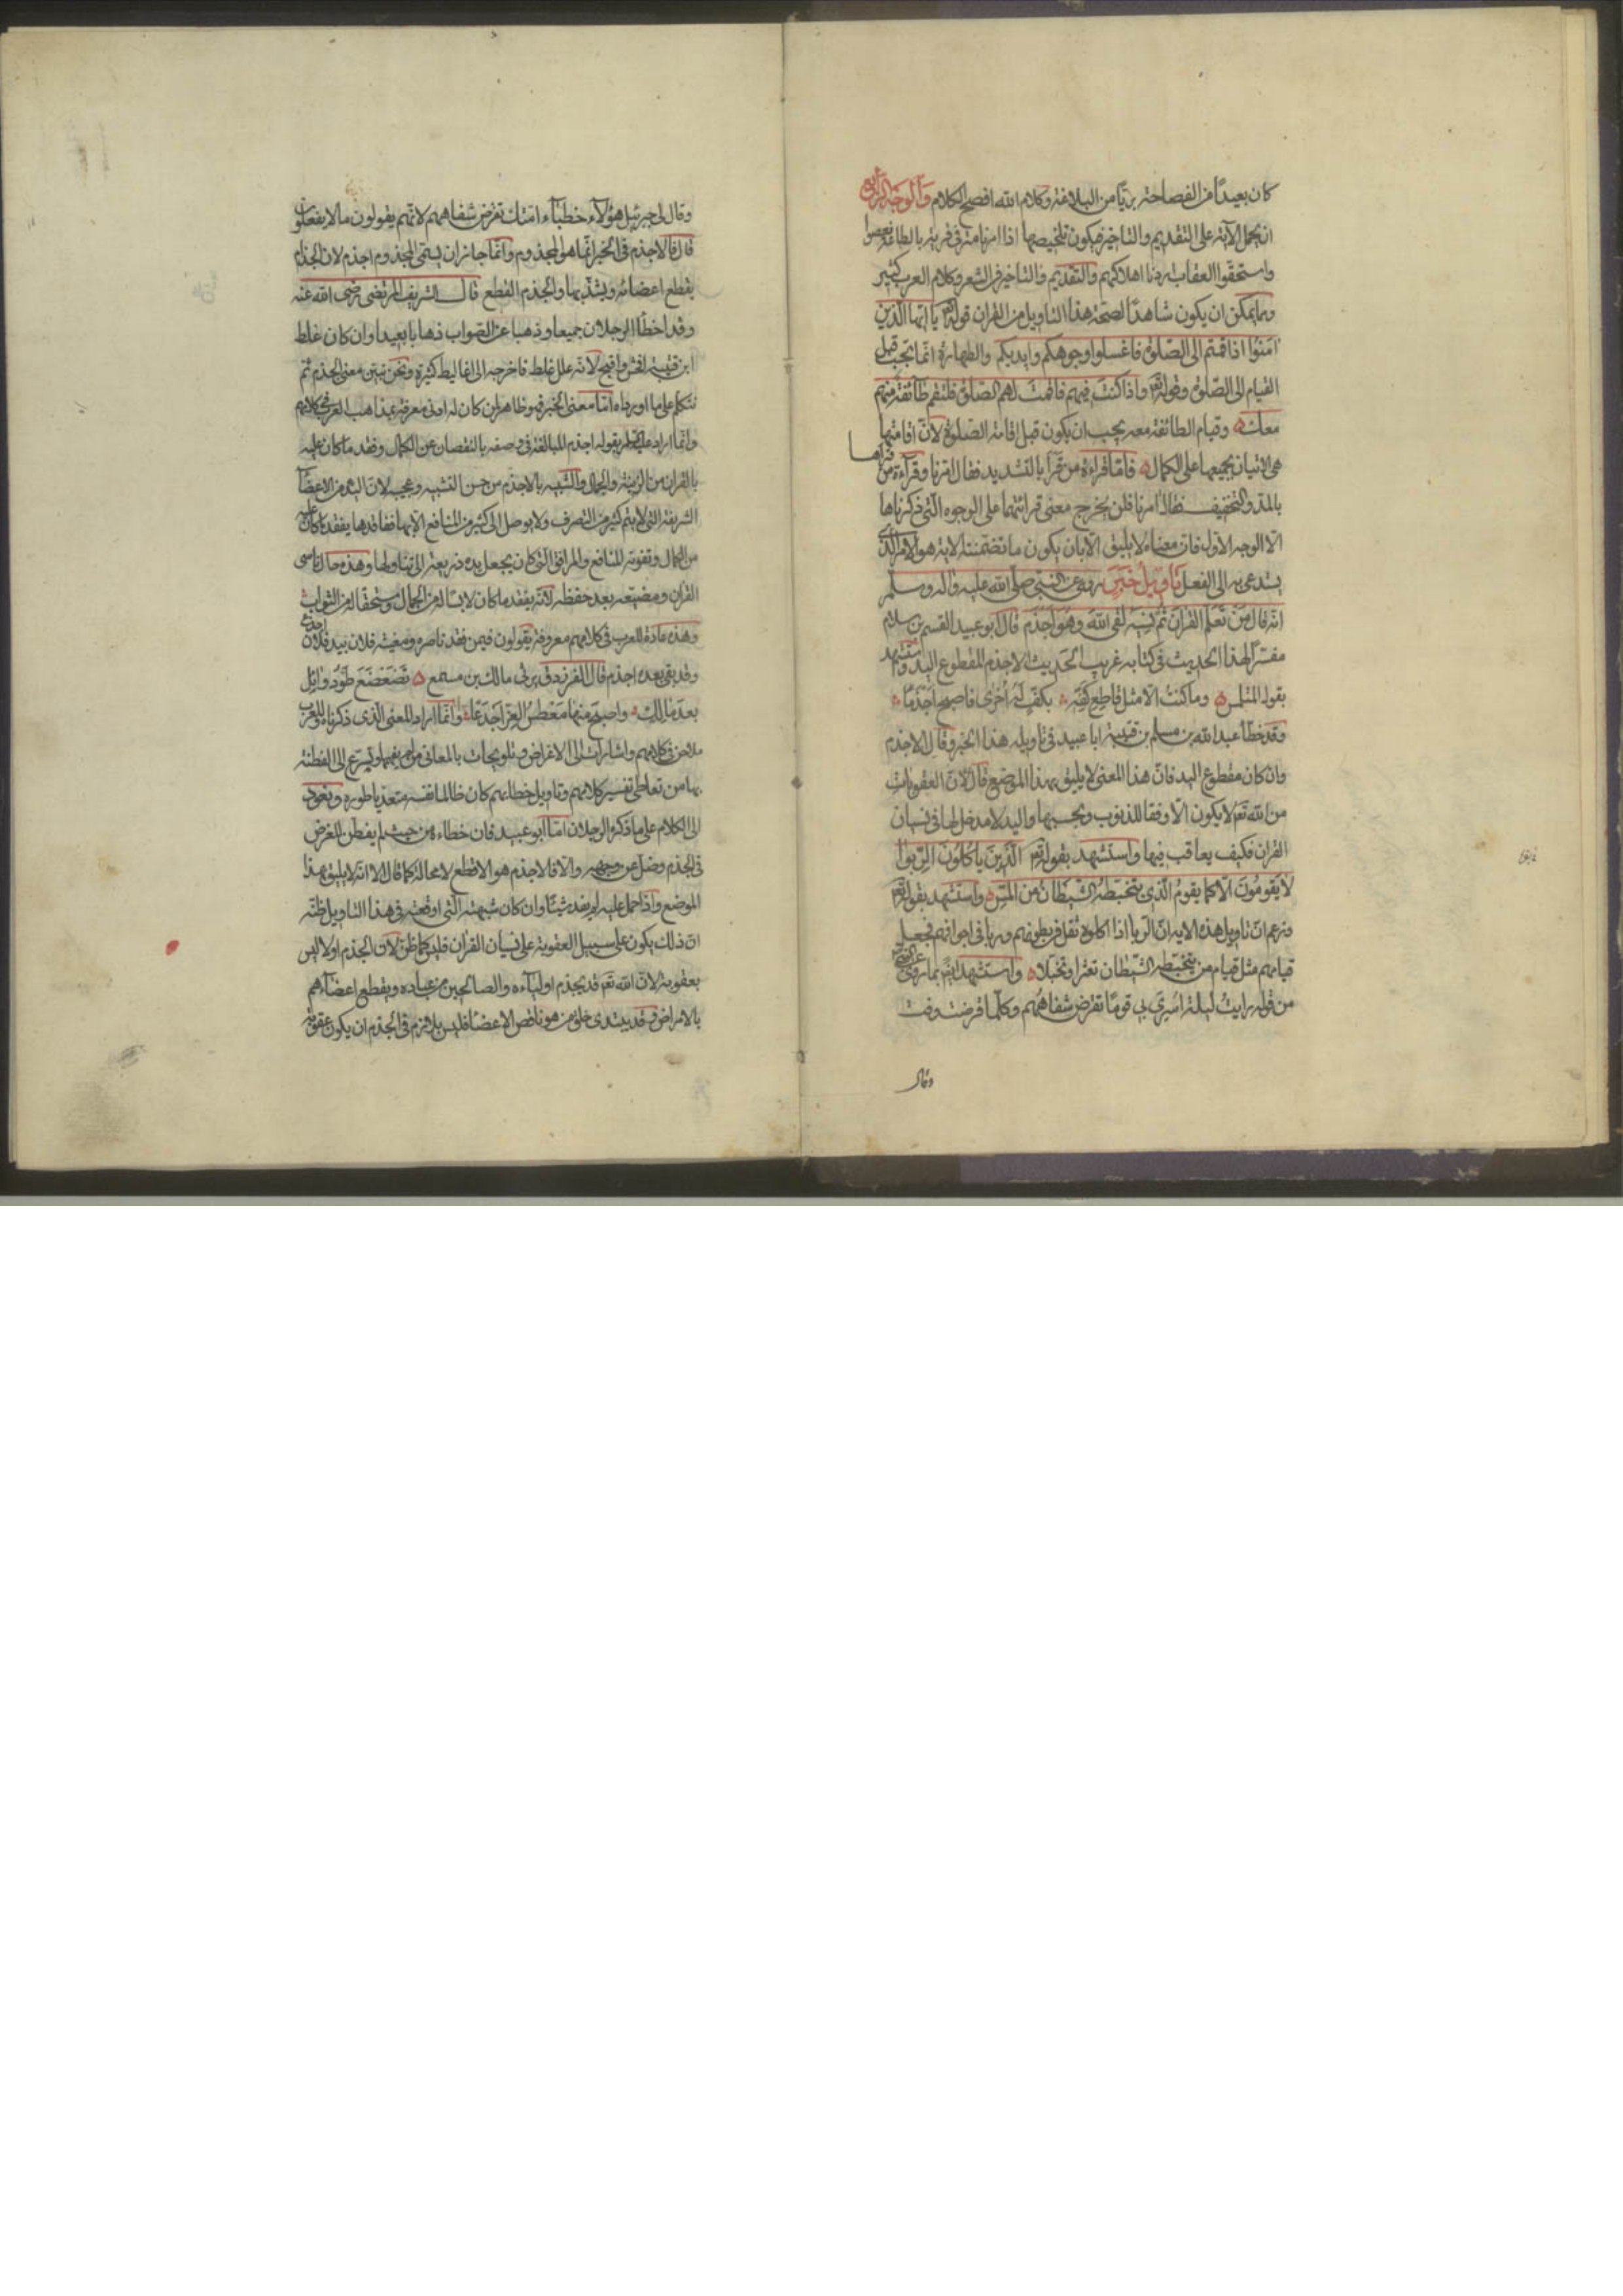 كان بعيدًا من الفصاحة بريًا من البلاغة وكلام الله افصح الكلام والوجه الرابع
ان يحمل الآية على التقديم والتاخير فيكون تلخيصها اذا امرنا مترفى قرية بالطاعة فعصوا
واستحقوا العقاب اردنا اهلاكهم والتقديم والتاخير فى الشعر وكلام العرب كثير
ومما يمكن ان يكون شاهدًا لصحة هذا التاويل من القران قوله تعالى يا ايها الذين
امنوا اذا قمتم الى الصلوة فاغسلوا وجوهكم وايديكم والطهارة انما تجب قبل
القيام الى الصلوة وقوله تعالى واذا كنت فيهم فاقمت لهم الصلوة فلتقم طائفة منهم
معك وقيام الطائفة معه يجب ان يكون قبل اقامة الصلوة لانّ اقامتها
هى الاتيان بجميعها على الكمال فامّا قراءة من قرأ بالتشديد فقال امّرنا وقراءة من قراها
بالمد والتخفيف فقال آمرنا فلن يخرج معنى قرائتهما على الوجوه التى ذكرناها
الا الوجه الاول فان معناه لا يليق الا بان يكون ما تضمنته الاية هو الامر الذى
يستدعى به الى الفعل تاويل خبر روى عن النبى صلى الله عليه وآله وسلم
انه قال من تعلم القران ثم نسيه لقى الله وهو اجذم قال ابو عبيد القسم بن سلام
مفسرًا لهذا الحديث فى كتابه غريب الحديث الاجذم المقطوع اليد واستشهد
بقول المتلمس وما كنت الا مثل قاطع كفه بكف له اخرى فاصبح اجذما
وقد خطأ عبد الله بن مسلم بن قتيبة ابا عبيد فى تاويله هذا الخبر وقال الاجذم
وان كان مقطوع اليد فان هذا المعنى لا يليق بهذا الموضع قال لان العقوبات
من الله تعالى لا يكون الا وفقا للذنوب وبحسبها واليد لا مدخل لها فى نسيان
القران فكيف يعاقب فيها واستشهد بقوله تعالى الذين ياكلون الربوا
لا يقومون الا كما يقوم الذى يتخبطه الشيطان من المس واستشهد بقوله تعالى
وزعم ان تاويل هذه الاية ان الربا اذا اكلوه ثقل فى بطونهم وربا فى اجوافهم فجعل
قيامهم مثل قيام من يتخبطه الشيطان تعثرا وتخبلا واستشهد ايضا بما روى عن النبى
من قوله رايت ليلة اسرى بى قومًا تقرض شفاههم وكلما قرضت وفت
وقال
وقال لى جبرئيل هؤلاء خطباء امتك تقرض شفاههم لانهم يقولون ما لا يفعلون
قال فالاجذم فى الخبر انما هو المجذوم وانما جاز ان يسمى المجذوم اجذم لان الجذام
يقطع اعضائه ويشذبها والجذم القطع قال الشريف المرتضى رضى الله عنه
وقد اخطأ الرجلان جميعا وذهبا عن الصواب ذهابا بعيدا وان كان غلط
ابن قتيبة افحش واقبح لانه علل غلطه فاخرجه الى اغاليط كثيرة ونحن نبين معنى الجذم ثم
نتكلم على ما اورداه اما معنى الخبر فهو ظاهر لمن كان له ادنى معرفة بمذاهب العرب فى كلامهم
وانما اراد عليه السلم بقوله اجذم المبالغة فى وصفه بالنقصان عن الكمال وفقد ما كان عليه
بالقران من الزينة والجمال والتشبيه بالاجذم من حسن التشبيه وعجيبه لان اليد من الاعضا
الشريفة التى لا يتم كثير من التصرف ولا يوصل الى كثير من المنافع الا بها ففاقدها يفقد ما كان عليه
من الكمال وتفوته المنافع والمرافق التى كان يجعل يده ذريعة الى تناولها وهذه حال ناسى
القران ومضيعه بعد حفظه لانه يفقد ما كان لابسًا له من الجمال ومستحقا له من الثواب
وهذه عادة للعرب فى كلامهم معروفة يقولون فيمن فقد ناصره ومغيثه فلان بيد فلان اجدع
وقد بقى بعده اجذم قال الفرزدق يرثى مالك بن مسمع تضعضع طود وائل
بعد مالك واصبح منها معطس العز اجدعا وانما اراد المعنى الذى ذكرناه وللعرب
ملاحن فى كلامهم واشارات الى الاغراض وتلويحات بالمعانى من لم يفهمها ويسرع الى الفطنة
بها من تعاطى تفسير كلامهم وتاويل خطابهم كان ظالما نفسه متعديا طوره ونعود
الى الكلام على ما ذكره الرجلان اما ابو عبيد فان خطاءه من حيث لم يفطن للغرض
فى الجذم وضل عن وجهه والا فالاجذم هو الاقطع لا محالة كما قال الا انه لا يليق بهذا
الموضع واذا حمل عليه لم يفد شيئًا وان كان شبهته التى اوقعته فى هذا التاويل ظنه
ان ذلك يكون على سبيل العقوبة على نسيان القران فليس كما ظن لان الجذم اولا ليس
بعقوبة لان الله تعالى قد يجذم اولياءه والصالحين من عباده ويقطع اعضاءهم
بالامراض وقد يبتدى خلق من هو ناقص الاعضا فليس بلازم فى الجذم ان يكون عقوبة